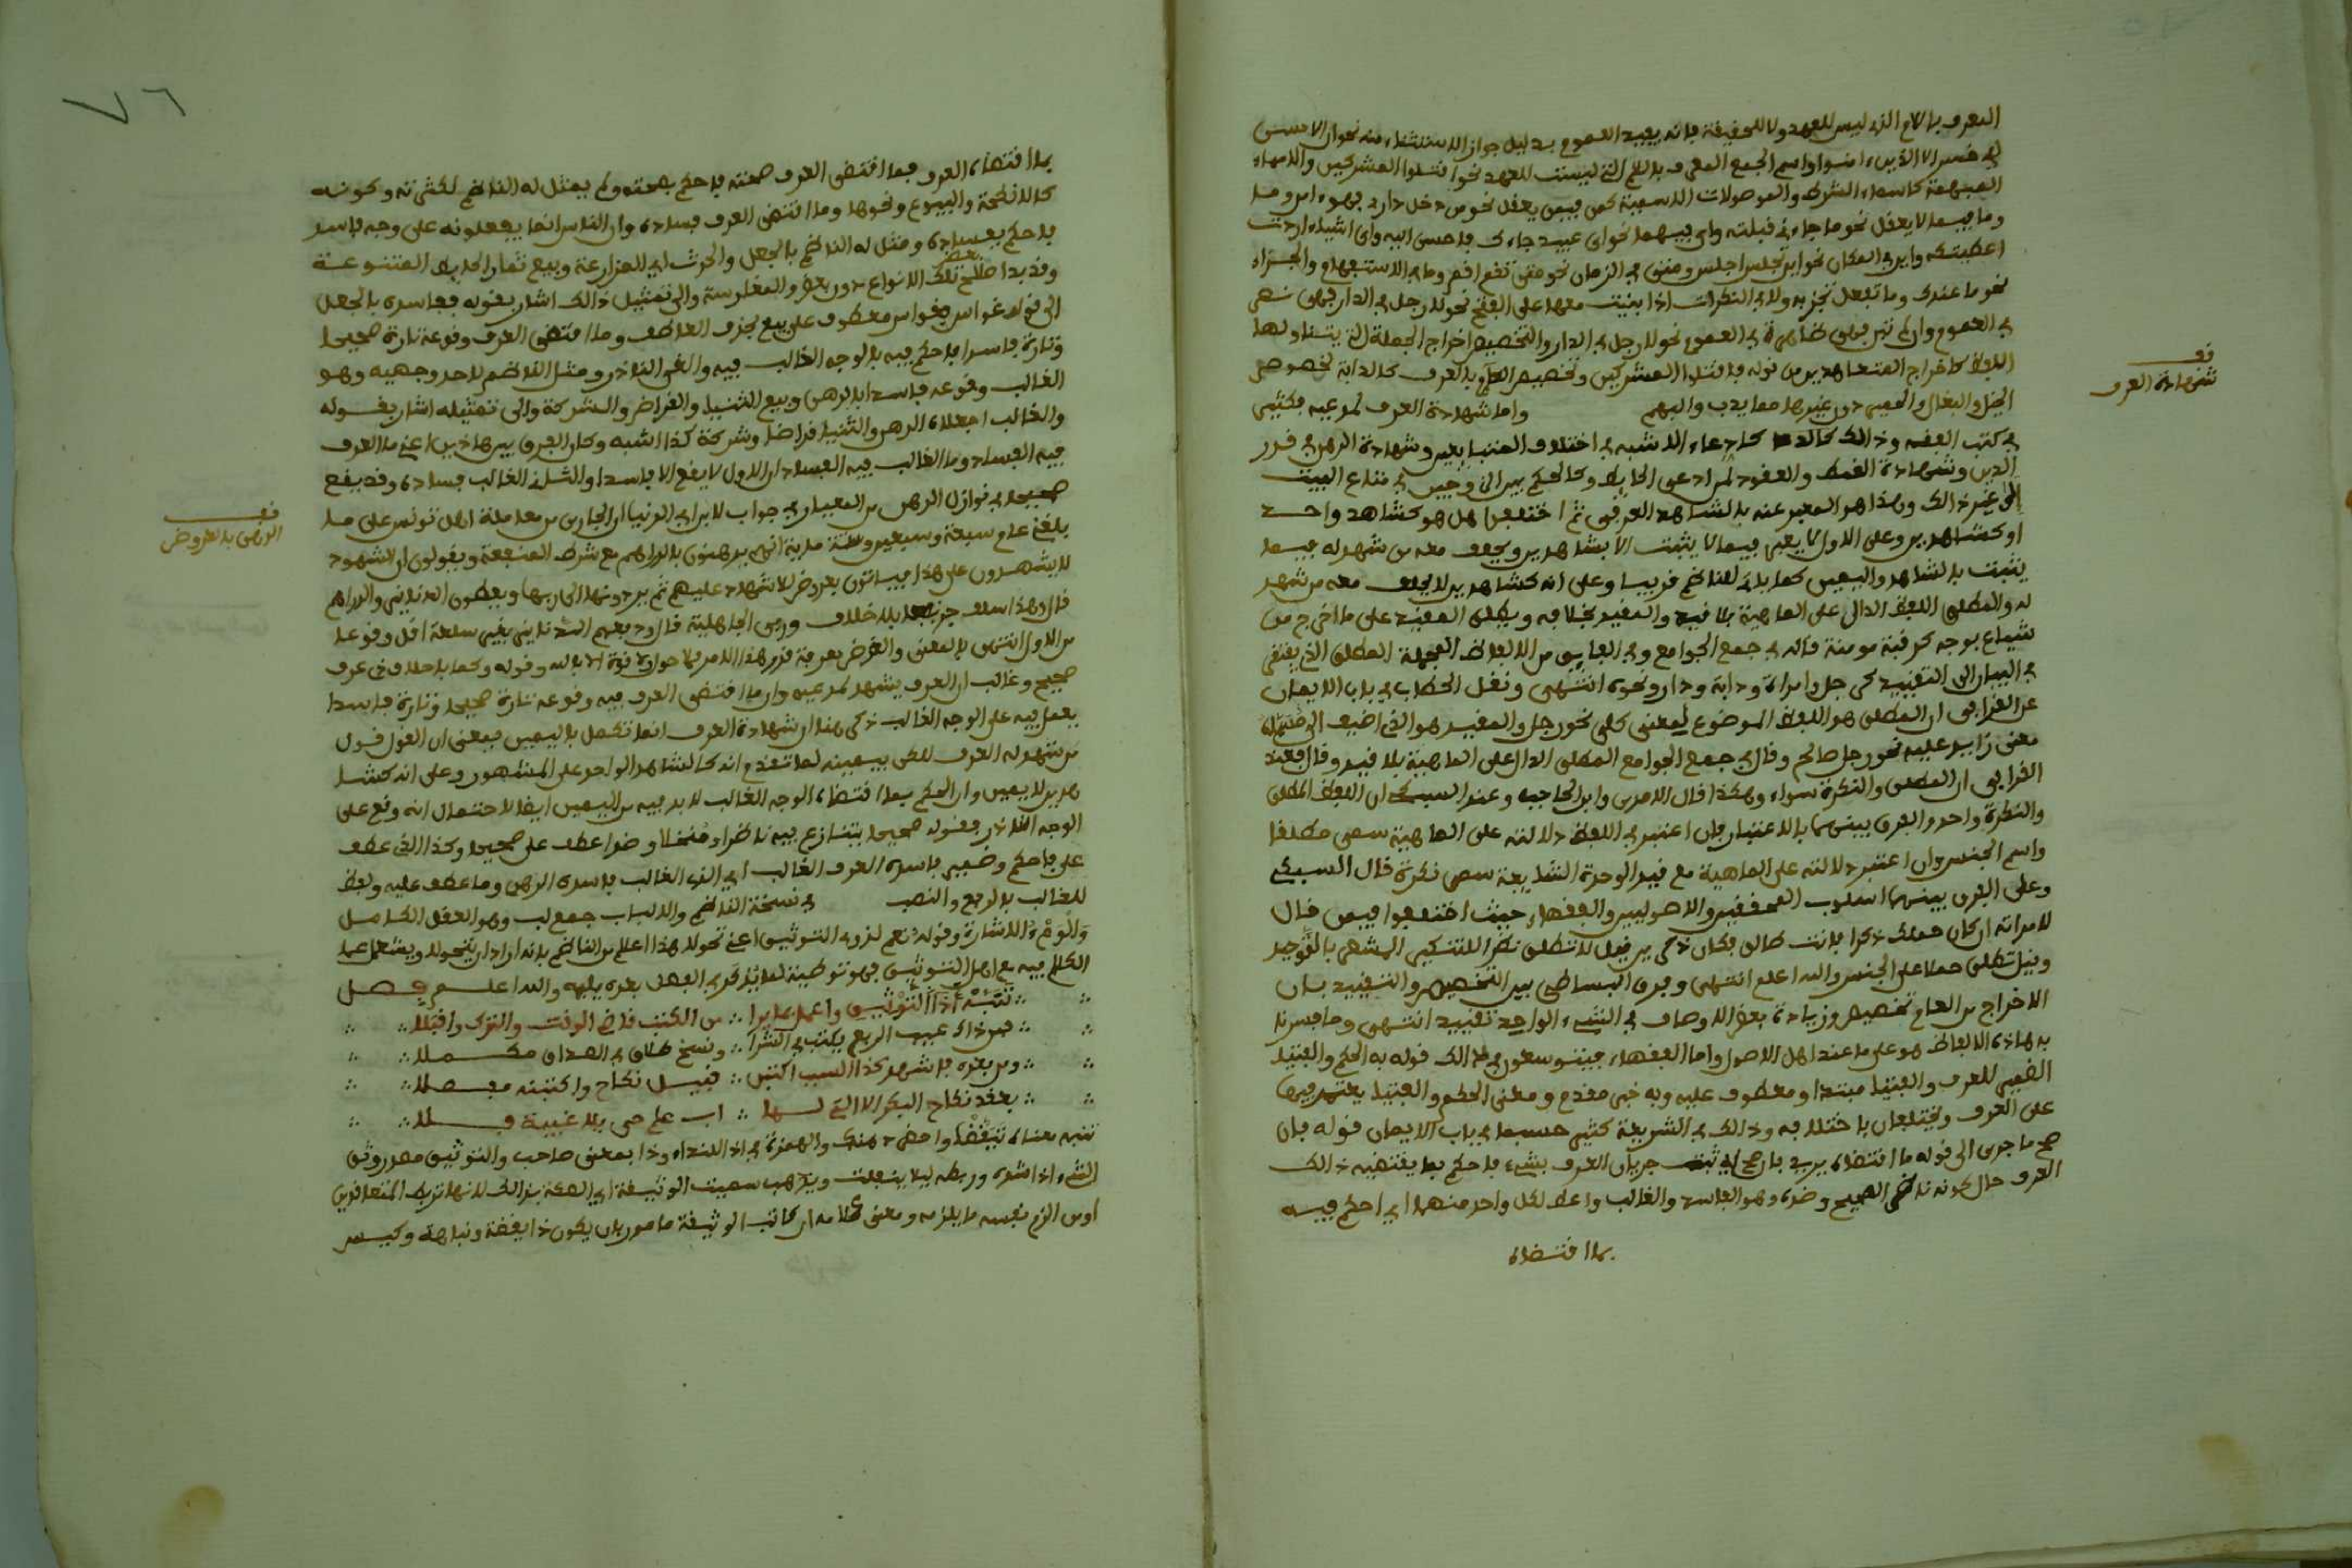 المعرف بالام الذي ليس للعهد ولا للحقيقة فانه يفيد العموم بدليل جواز الاستثناء منه نحو ان الانسان
لفي خسر الا الذين ءامنوا واسم الجمع المعرف باللام التي ليست للعهد نحو اقتلوا المشركين والاسماء
المبهمة كاسماء الشرط والموصولات الاسمية كمن فيمن يعقل نحو من دخل داري فهو ءامن وما
وما فيما لا يعقل نحو ما جاءني قبلته واي فيهما نحو اي عبيد جاءك فاحسن اليه واي اشياء اردت
اعطيتكه واين في المكان نحو اين تجلس اجلس ومتى في الزمان نحو متى تقم اقم وما في الاستفهام والجزاء
نحو ما عندك وما تفعل تجز به ولا في النكرات اذا بنيت معها على الفتح نحو لا رجل في الدار فهي نص
في العموم وان لم تبن فهي ظاهرة في العموم نحو لا رجل في الدار والتخصيص اخراج الجملة التي يتناولها
اللفظ كاخراج المتعاهدين من قوله فاقتلوا المشركين وتخصيص العام بالعرف كالدابة لخصوص
الخيل والبغال والحمير دون غيرها مما يدب والبهم واما شهادة العرف لمدعيه فكثير
في كتب الفقه وذالك كادعاء الاشبه في اختلاف المتبايعين وشهادة الرهن في قدر
الدين وشهادة القمط والعقود لمن ادعى الحايط وكالحكم بين الزوجين في متاع البيت
الى غير ذالك وهذا هو المعبر عنه بالشاهد العرفي ثم اختلف هل هو كشاهد واحد
او كشاهدين وعلى الاول لا يعتبر فيما لا يثبت الا بشاهدين ويحلف معه من شهد له فيما
يثبت بالشاهد واليمين كما ياتي للناظم قريبا وعلى انه كشاهدين لا يحلف معه من شهد
له والمطلق اللفظ الدال على الماهية بلا قيد والمقيد بخلافه ويطلق المقيد على ما اخرج من
شياع بوجه كرقبة مومنة قاله في جمع الجوامع وفي الفايق من الالفاظ المجملة المطلق الذي يفتقر
في البيان الى التقييد كرجل وامراة ودابة ودار ونحوه انتهى ونقل الحطاب في باب الايمان
عن القرافي ان المطلق هو اللفظ الموضوع لمعنى كلي نحو رجل والمقيد هو الذي اضيف الى مسماه
معنى زايد عليه نحو رجل صالح وقال في جمع الجوامع المطلق الدال على الماهية بلا قيد وقال فعند
القرافي ان المطلق والنكرة سواء وهكذا قال الامدي وابن الحاجب وعند السبكي ان اللفظ المطلق
والنكرة واحد والفرق بينهما بالاعتبار فان اعتبر في اللفظ دلالته على الماهية سمي مطلقا
واسم الجنس وان اعتبر دلالته على الماهية مع قيد الوحدة الشايعة سمي نكرة قال السبكي
وعلى الفرق بينهما اسلوب المحققين والاصوليين والفقهاء حيث اختلفوا فيمن قال
لامراته ان كان حملك ذكرا فانت طالق فكان ذكرين قيل لا تطلق نظرا للتنكير المشعر بالتوحيد
وقيل تطلق حملا على الجنس والله اعلم انتهى وفرق البساطي بين التخصيص والتقييد بان
الاخراج من العام تخصيص وزيادة بعض الاوصاف في الشيء الواحد تقييد انتهى وما فسرنا
به هاذه الالفاظ هو على ما عند اهل الاصول واما الفقهاء فيتوسعون في ذالك قوله به الحكم والفتيا
الضمير للعرف والفتيا مبتدا ومعطوف عليه وبه خبر مقدم ومعنى الحكم والفتيا يعتمد فيهما
على العرف ويختلفان باختلافه وذالك في الشريعة كثير حسبما في باب الايمان قوله فان
صح ما جرى الى قوله ما اقتضاه يريد فان صح اي ثبت جريان العرف بشيء فاحكم بما يقتضيه ذالك
العرف حال كونه ناظم الصحيح وضده وهو الفاسد والغالب واعط لكل واحد منهما اي احكم فيه
بما اقتضاه
قف
شهادة العرف
٧٦
بما اقتضاه العرف فما اقتضى العرف صحته فاحكم بصحته ولم يمثل له الناظم لكثرته وكونه
كالانكحة والبيوع ونحوها وما اقتضى العرف فساده وان الناس انما يفعلونه على وجه فاسد
فاحكم بفساده ومثل له الناظم بالجعل والحرث اي المزارعة وبيع ثمار الحايط المتنوعة
وقد بدا صلاح بعض تلك الانواع دون بعض والمغارسة والى تمثيل ذالك اشار بقوله ففاسده بالجعل
الى قوله غواس فغواس معطوف على بيع بحذف العاطف وما اقتضى العرف وقوعه تارة صحيحا
وتارة فاسدا فاحكم فيه بالوجه الغالب فيه والغ النادر ومثل الناظم لاحد وجهيه وهو
الغالب وقوعه فاسدا بالرهن وبيع الثنيا والقراض والشركة والى تمثيله اشار بقوله
والغالب اجعلاه الرهن والثنيا قراضا وشركة كذا الشبه وكان الفرق بين هاذين اعني ما العرف
فيه الفساد وما الغالب فيه الفساد ان الاول لا يقع الا فاسدا والثاني الغالب فساده وقد يقع
صحيحا في نوازل الرهن من المعيار في جواب لابن ابي الدنيا ان الجاري من معاملة اهل تونس على ما
بلغني عام سبعة وسبعين وستماية انهم يرهنون بالدراهم مع شرط المنفعة ويقولون ان الشهود
لا يشهدون على هذا فياتون بعروض للاشهاد عليهم ثم يردونها الى ربها ويعطون الدنانير والدراهم
قال وهذا سلف جر نفعا بلا خلاف وربى الجاهلية قال ودفعهم الدنانير بغير سلعة اقل وقوعا
من الاول انتهى بالمعنى والغرض معرفة قدر هذا الامر فلا حول ولا قوة الا بالله وقوله وكما بلا خلاف في عرف
صحيح وغالب ان العرف يشهد لمدعيه وان ما اقتضى العرف فيه وقوعه تارة صحيحا وتارة فاسدا
يعمل فيه على الوجه الغالب ذكر هنا ان شهادة العرف انما تكمل باليمين فمعنى ان القول قول
من شهد له العرف لاكن بيمينه لما تقدم انه كالشاهد الواحد على المشهور وعلى انه كشا
هدين لا يمين وان الحكم بما اقتضاه الوجه الغالب لا بد فيه من اليمين ايضا لاحتمال انه وقع على
الوجه النادر فقوله صحيحا يتنازع فيه ناظرا و وضوا عطف على صحيحا وكذا الذي عطف
على فاحكم وضمير فاسده العرف الغالب اي الذي الغالب فاسده الرهن وما عطف عليه ولفظ
الغالب بالرفع والنصب في نسخة الناظم والالباب جمع لب وهو العقل الكامل
والومء الاشارة وقوله نعم لذوي التوثيق اعني تحولا هذا اعلام من الناظم بانه اراد ان يتحول ويشتغل عما
الكلام فيه مع اهل التوثيق فهو توطية لما يذكر في الفصل بعده يليه والله اعلم فصل
تنبه اذا التوثيق واعمل بما يرا من الكتب قاضي الوقت والترك واقبلا
فمن ذاك عيب الربع يكتب في الشرا ونسخ صداق في الصداق مكملا
ومن بعده فاشهد كذا السبب اكتبن قبيل نكاح واكتبنه مفصلا
بعقد نكاح البكر الا التي لها اب علم حي بلا غيبة فلا
تنبه معناه تيقظا واحضر ذهنك والهمزة في اذا للنداء وذا بمعنى صاحب والتوثيق مصدر وثق
الشيء اذا شده وربطه ليلا ينفلت ويذهب سميت الوثيقة اي الصحة بذالك لانها تربط المتعاقدين
او من الزم نفسه ما يلزمه ومعنى كلامه ان كاتب الوثيقة مامور بان يكون ذا يقظة ونباهة وكيس
قف
الرهن بالعروض